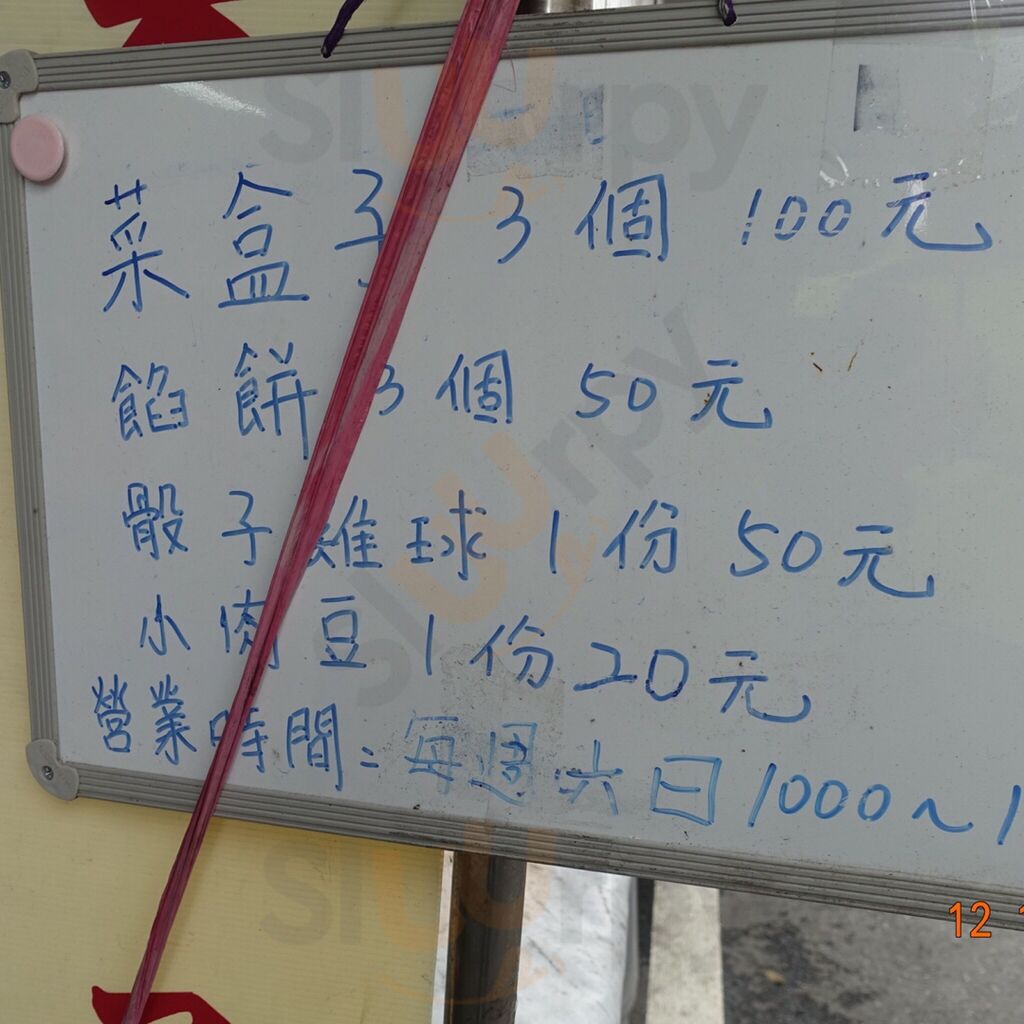 菜盒子 3個 100元
餡餅 3個 50元
骰子雞球 1份 50元
小肉豆 1份 20元
營業時間：每週六日 1000～1
12
slurpy
slurpy
slurpy
slurpy